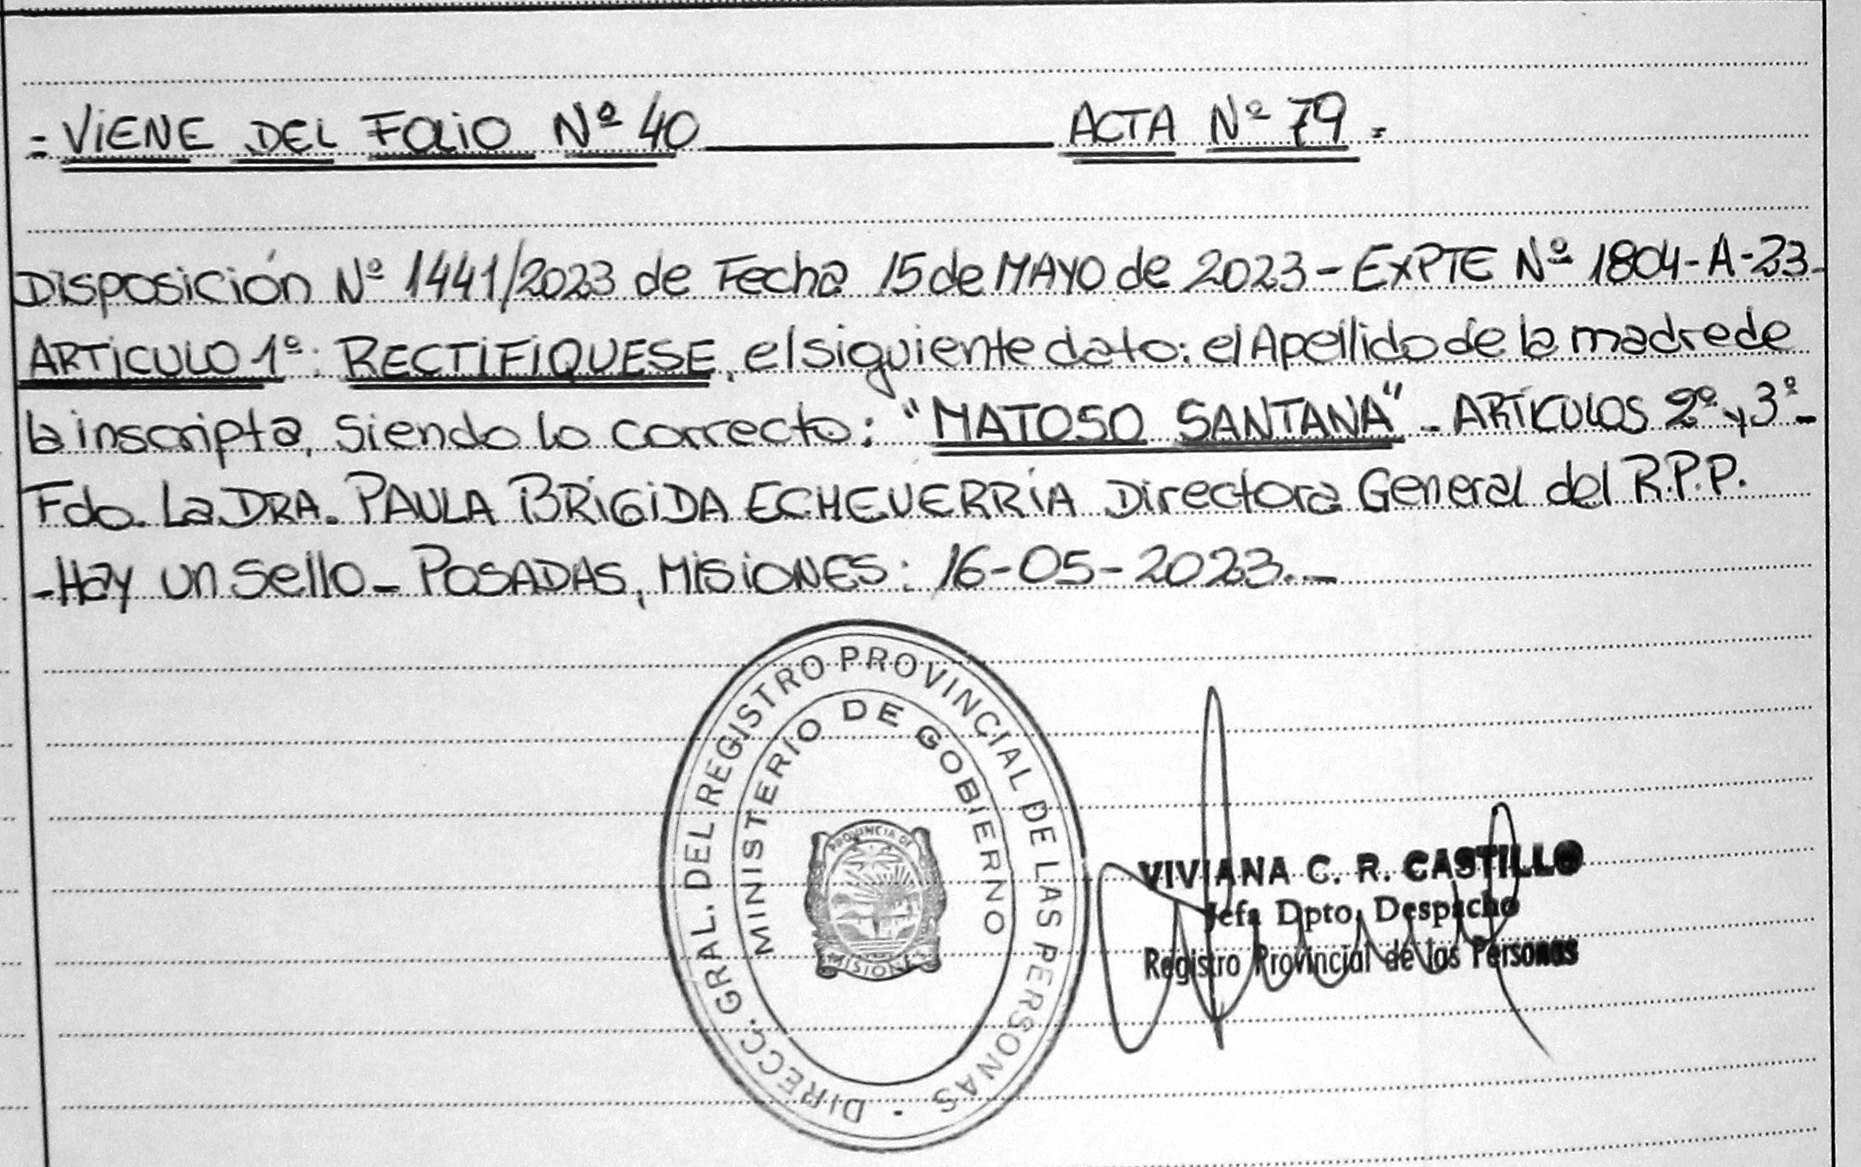 = VIENE DEL FOLIO Nº 40 ACTA Nº 79 =
Disposición Nº 1441/2023 de Fecha 15 de MAYO de 2023 - EXPTE Nº 1804-A-23.
ARTICULO 1º: RECTIFIQUESE, el siguiente dato: el Apellido de la madre de
la inscripta, siendo lo correcto: "MATOSO SANTANA" - ARTÍCULOS 2º y 3º -
Fdo. La DRA. PAULA BRIGIDA ECHEVERRÍA Directora General del R.P.P.
- Hay un sello - POSADAS, MISIONES: 16-05-2023.-
DIRECC. GRAL. DEL REGISTRO PROVINCIAL DE LAS PERSONAS -
MINISTERIO DE GOBIERNO
PROVINCIA DE
MISIONES
VIVIANA C. R. CASTILLO
Jefa Dpto. Despacho
Registro Provincial de las Personas